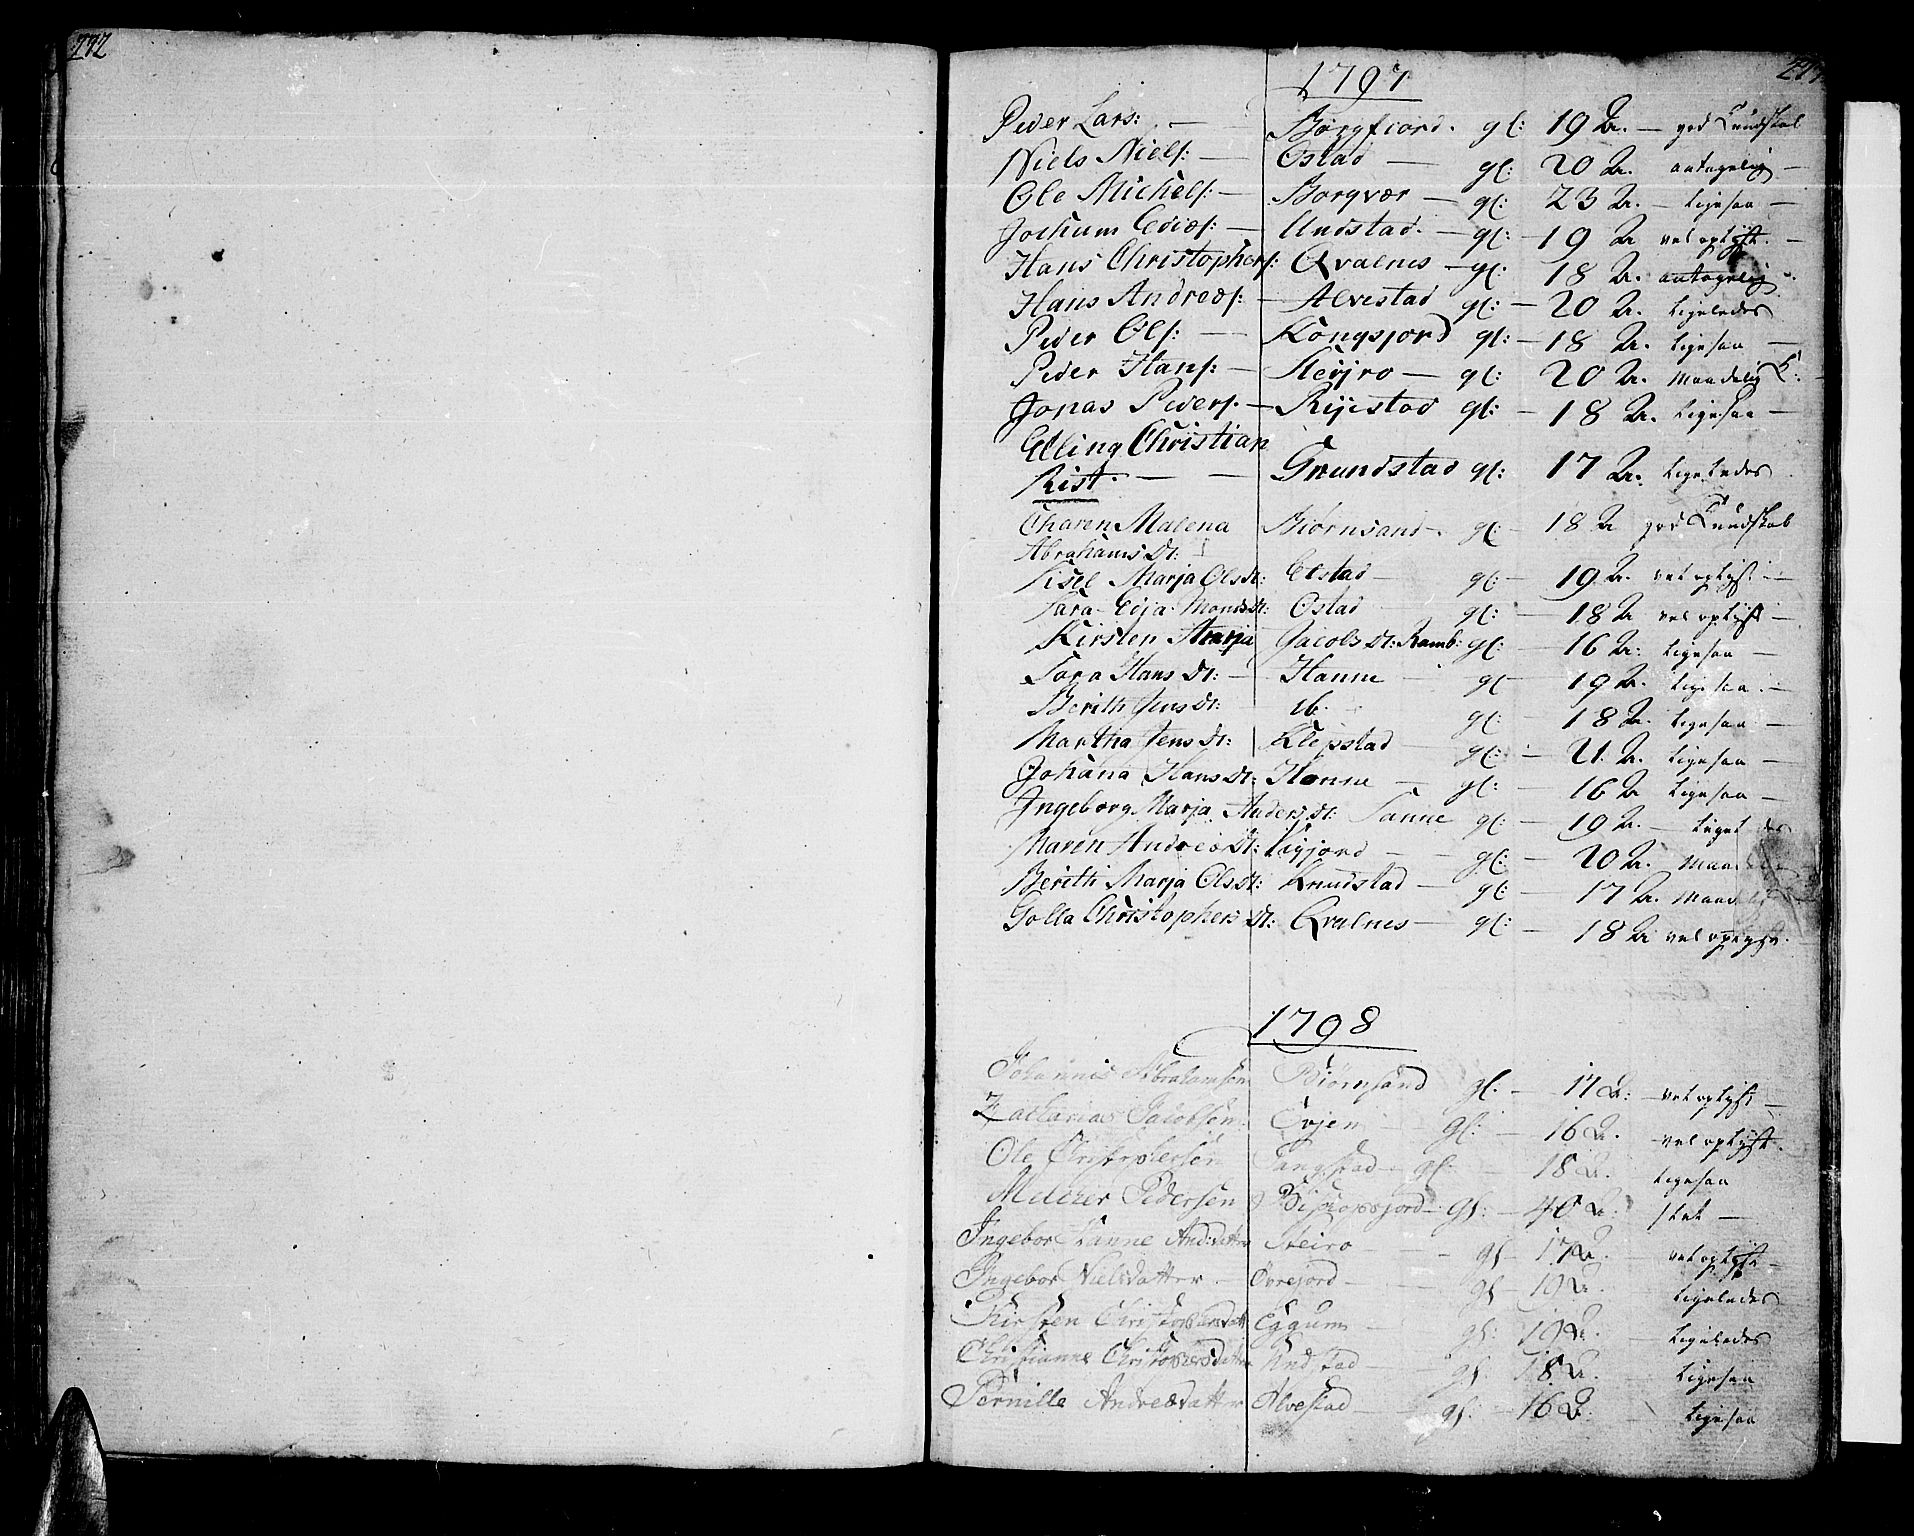 272
1797
Peder Lars: — Borgfiord. gl: 19 Ar. — god Kundskab
Niels Niels: — Ostad — gl: 20 Ar. antagelig —
Ole Michels: — Borgvær — gl: 23 Ar. — ligesaa —
Jochum Edis: — Undstad. — gl: — 19 Ar vel oplyst. —
Hans Christophers: Qvalnes — gl: 18 Ar. antagelig
Hans Andreas: — Alvestad gl: — 20 Ar. ligeledes
Peder Ols: — Kongsjord gl: — 18 Ar. ligesaa —
Peder Hans: — Stejro — gl: 20 Ar. maadelig K:
Jonas Peders. — Rijestad gl: — 18 Ar. ligesaa —
Elling Christian
Rist. — — Grundstad gl: 17 Ar. ligeledes
Charen Malena Biørnsand. gl: — 18 Ar god Kundskab
Abrahams Dt:
Lisel Marja Olsdt: Elstad — gl: — 19 Ar. vel oplyst —
Sara Edja Monsdt: Ostad gl: — 18 Ar vel oplyst —
Kirsten Marja Jacobs Dt: Ramb: gl: — 16 Ar: ligesaa —
Sara Hans Dt: — Hanne gl — 19 Ar. ligesaa. —
Berith Jens Dt: ib. gl: — 18 Ar. ligesaa —
Martha Jens Dt: Klepstad — gl: — 21. Ar. ligesaa —
Johana Hans Dt: Hanne — gl: — 16 Ar ligesaa —
Ingeborg Marja Anders Dt: Sanne gl: — 19 Ar. — ligeledes
Maren Andreas Dt: Ligjord — gl: — 20 Ar.
Berith Marja Olsdt: Knudstad — gl: — 17 Ar.
Golla Christophers Dt: Qvalnes — gl: — 18 Ar vel oplyst.
1798
Johannis Abrahamsen Biørnsand gl: — 17 Ar: vel oplyst —
Zacharias Jacobsen: Evjen gl: — 16 Ar. vel oplyst.
Ole Christophersen Tangstad — gl: — 18 Ar. ligesaa
Melcher Pedersen Bispopsjord — gl: — 40 Ar. slet —
Ingebor Hanne And:datter Steiro — gl — 17 Ar. — vel oplyst —
Ingebor Nielsdatter — Øvrejord — gl — 19 Ar. ligeledes
Kirsten Christophersdatt Eggum — gl: 19 Ar. — ligeledes
Christianne Christophersdatter Knudstad — gl: — 18 Ar. — ligesaa
Pernille Andreasdatter Alvestad — gl: — 16 Ar — ligesaa